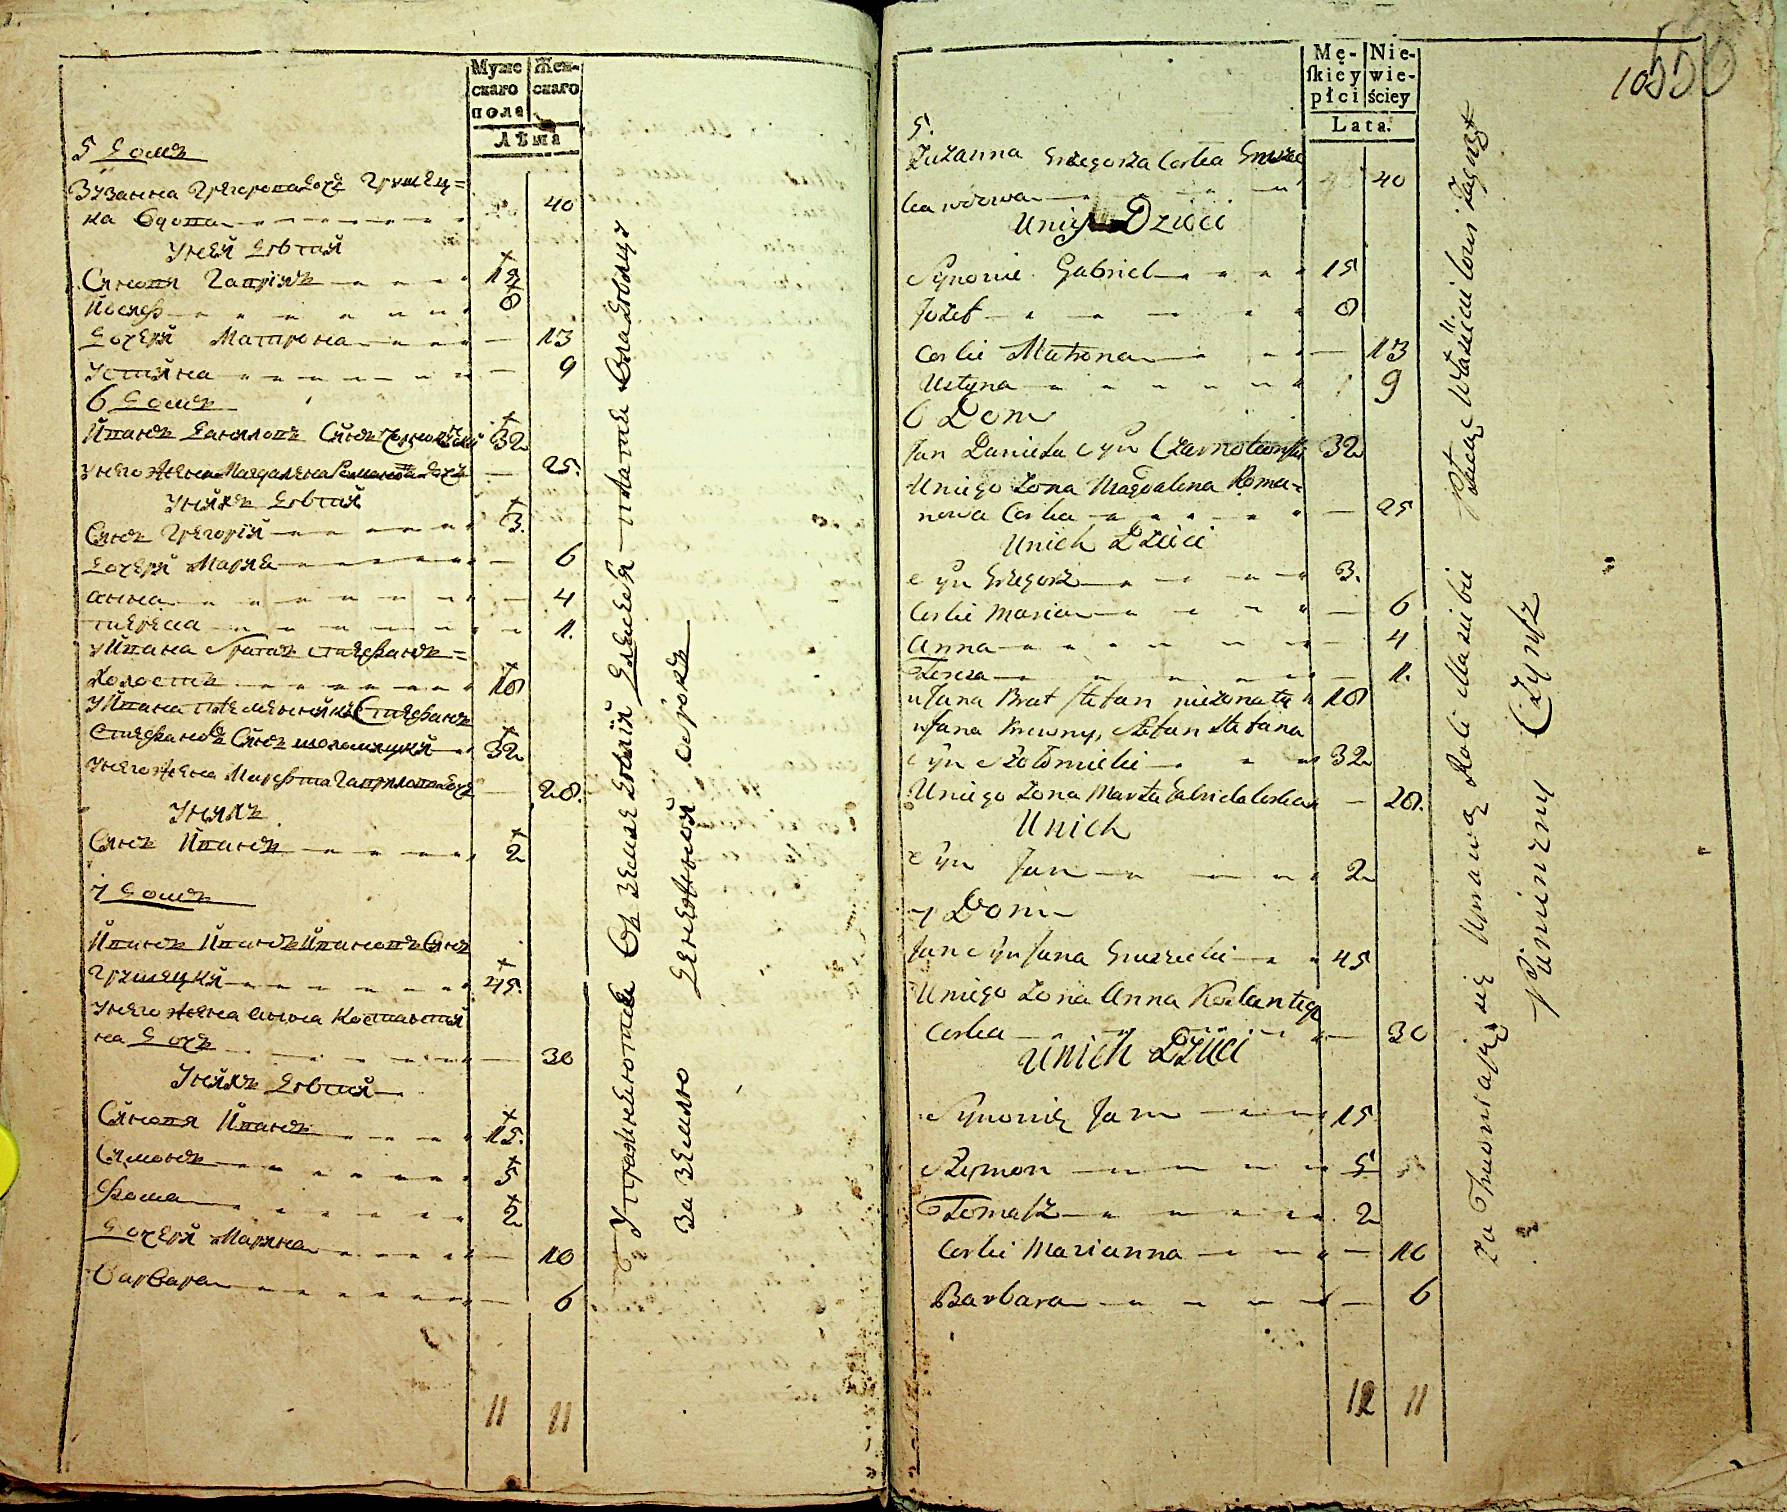 Муже
скаго
пола
Жен-
скаго
Лѣта
5 Домъ
Зузанна Григорова дочь Грушец=
ка вдова 40
У ней дѣтей
Сыновя Гаврило 12
Йосиф 8
Дочери Матрона 13
Устина 9
6 Домъ
Иванъ Даниловъ Сынъ 32
У него жена Магдалена Романова дочь 25.
У нихъ дѣтей
Сынъ Григорий 3.
Дочери Марья 6
Анна 4
Тереса 1.
У Ивана братъ Стефанъ=
холостъ 18
У Ивана племенникъ Стефанъ
Стефановъ Сынъ Шоломицкий 32
У него жена Марфта Гаврилова дочь 28.
У нихъ
Сынъ Иванъ 2
7 Домъ
Иванъ Иванъ Ивановъ Сынъ
Грушецкий 45.
У него жена Анна Костанти
на дочь 30
У нихъ дѣтей
Сыновя Иванъ 15.
Симонъ 5
Фома 2
Дочери Марина 10
Варвара 6
11 11
За землю денежной оброкъ
Mę-
skiey
płci
Nie-
wie-
ściey
Lata.
10550
5.
Zuzanna Grzegorza Corka Gruszec
ka wdowa 40
U niey Dzieci
Synowie Gabriel 15
Jozef 8
Corki Matrona 13
Ustyna 9
6 Dom
Jan Daniela Syn Czarnolewski 32
U niego Zona Magdalena Roma=
nowa Corka 25
U nich Dzieci
Syn Grzegorz 3.
Corki Maria 6
Anna 4
Teresa 1.
u Jana Brat Stefan nieżonaty 18
u Jana Krewny, Stefan Stefana
Syn Szołomicki 32
U niego Zona Marta Gabriela Corka 28.
U nich
Syn Jan 2
7 Dom
Jan Syn Jana Gruszecki 45
U niego Zona Anna Kostantego
Corka 30
U nich Dzieci
Synowie Jan 15
Szymon 5
Tomasz 2
Corki Marianna 10
Barbara 6
12 11
Pieniężny Czynsz